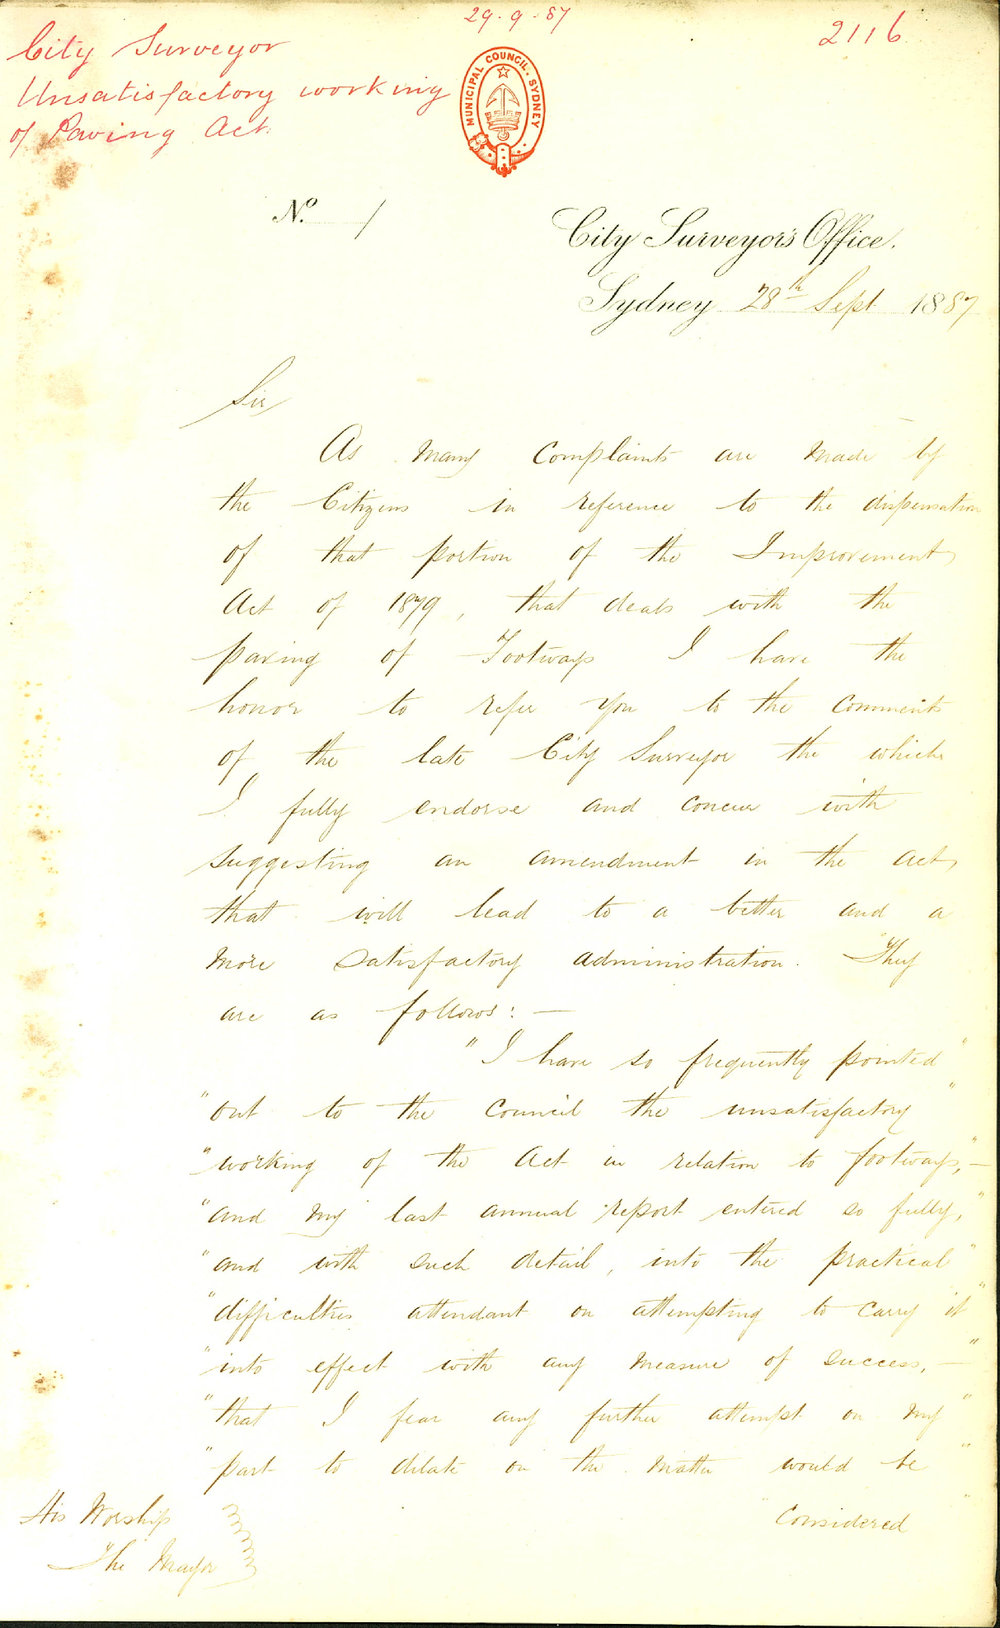 29.9.87
2116
City Surveyor
Unsatisfactory working
of Paving Act
MUNICIPAL COUNCIL. SYDNEY
No. 1
City Surveyor's Office.
Sydney 28th Sept 1887
Sir
As many Complaints are made by
the Citizens in reference to the dispensation
of that portion of the Improvement
Act of 1879, that deals with the
paving of Footways I have the
honor to refer you to the comments
of the late City Surveyor the which
I fully endorse and concur with
suggesting an amendment in the Act
that will lead to a better and a
more satisfactory administration. They
are as follows: —
"I have so frequently pointed"
"out to the Council the unsatisfactory"
"working of the Act in relation to footways,—"
"and my last annual report entered so fully,"
"and with such detail, into the practical"
"difficulties attendant on attempting to carry it"
"into effect with any measure of success,—"
"that I fear any further attempt on my"
"part to dilate on the matter would be"
Considered
His Worship
The Mayor